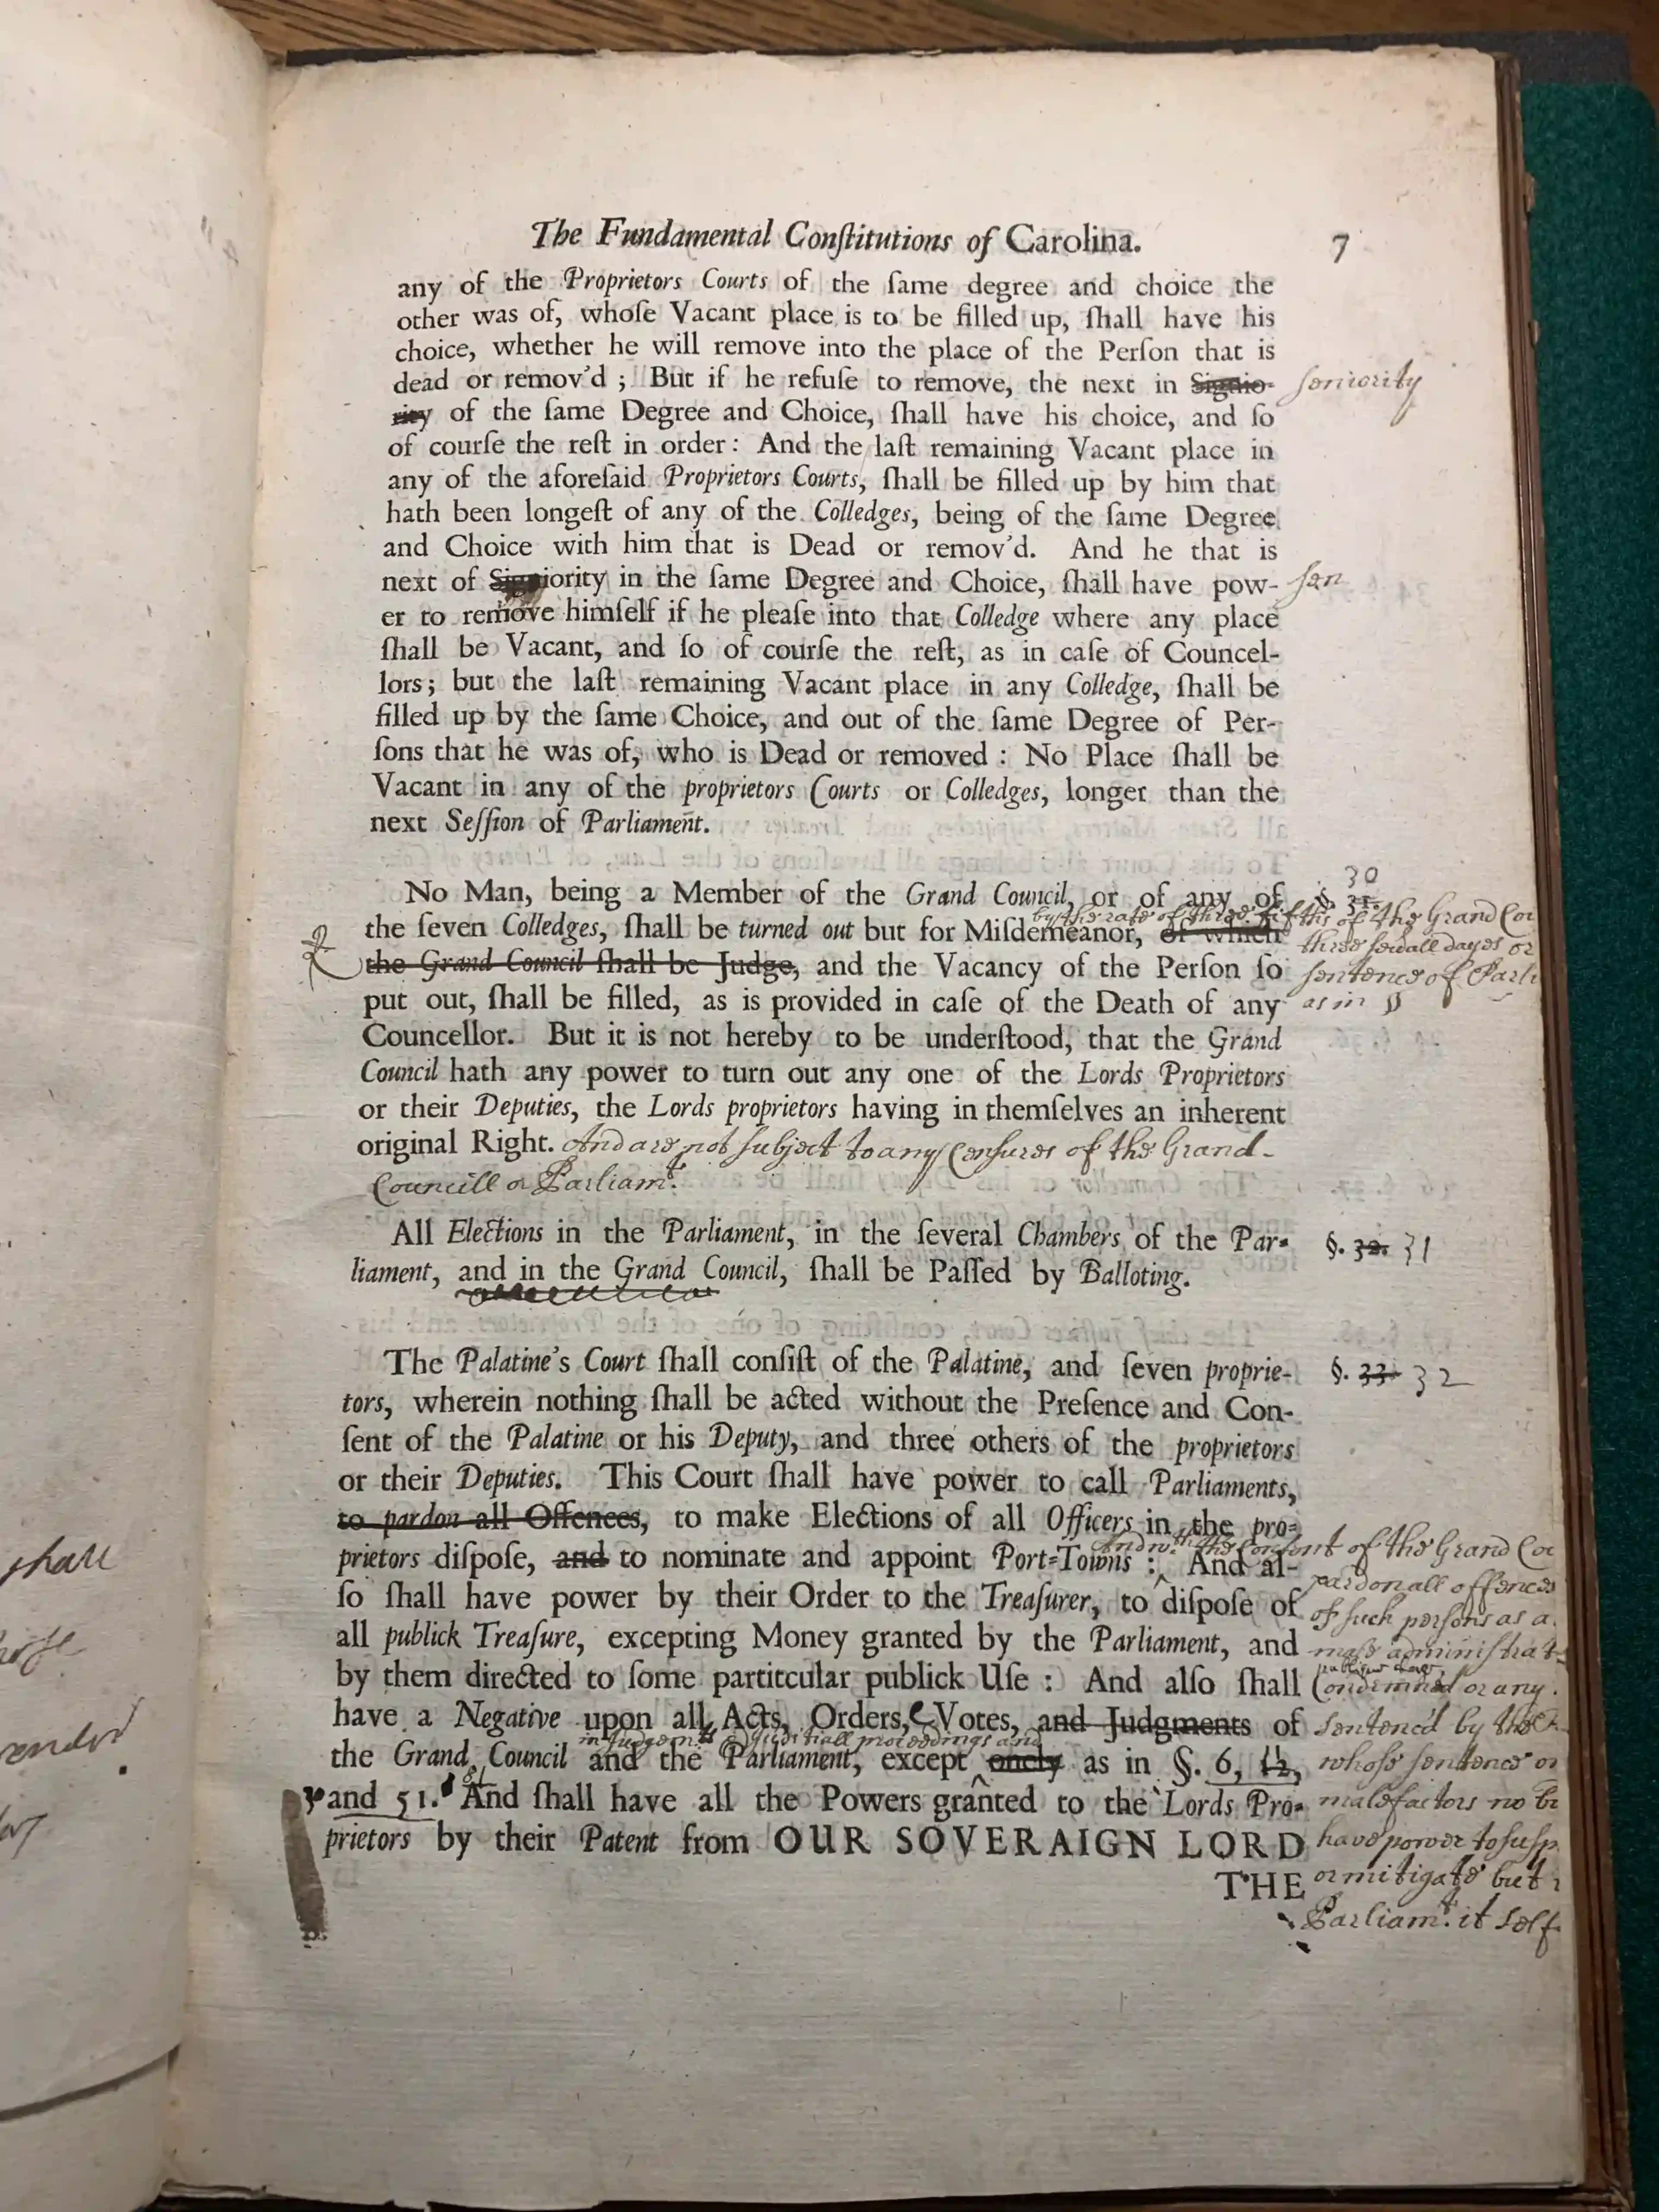 The Fundamental Conſtitutions of Carolina. 7
any of the Proprietors Courts of the ſame degree and choice the
other was of, whoſe Vacant place is to be filled up, ſhall have his
choice, whether he will remove into the place of the Perſon that is
dead or remov'd ; But if he refuſe to remove, the next in Signio- ſeniority
rity of the ſame Degree and Choice, ſhall have his choice, and ſo
of courſe the reſt in order : And the laſt remaining Vacant place in
any of the aforeſaid Proprietors Courts, ſhall be filled up by him that
hath been longeſt of any of the Colledges, being of the ſame Degree
and Choice with him that is Dead or remov'd. And he that is
next of Signiority in the ſame Degree and Choice, ſhall have pow- ſen
er to remove himſelf if he pleaſe into that Colledge where any place
ſhall be Vacant, and ſo of courſe the reſt, as in caſe of Councel-
lors; but the laſt remaining Vacant place in any Colledge, ſhall be
filled up by the ſame Choice, and out of the ſame Degree of Per-
ſons that he was of, who is Dead or removed : No Place ſhall be
Vacant in any of the proprietors Courts or Colledges, longer than the
next Seſſion of Parliament.
30
No Man, being a Member of the Grand Council, or of any of §. 31.
by the vote of three fifths of the Grand Cou
the ſeven Colledges, ſhall be turned out but for Miſdemeanor, of which
three ſeverall dayes or
the Grand Council ſhall be Judge, and the Vacancy of the Perſon ſo
ſentence of Parli
put out, ſhall be filled, as is provided in caſe of the Death of any
as in §
Councellor. But it is not hereby to be underſtood, that the Grand
Council hath any power to turn out any one of the Lords Proprietors
or their Deputies, the Lords proprietors having in themſelves an inherent
original Right. And are not ſubject to any Cenſures of the Grand-
Councill or Parliamt.
All Elections in the Parliament, in the ſeveral Chambers of the Par- §. 32. 31
liament, and in the Grand Council, ſhall be Paſſed by Balloting.
The Palatine's Court ſhall conſiſt of the Palatine, and ſeven proprie- §. 33. 32
tors, wherein nothing ſhall be acted without the Preſence and Con-
ſent of the Palatine or his Deputy, and three others of the proprietors
or their Deputies. This Court ſhall have power to call Parliaments,
to pardon all Offences, to make Elections of all Officers in the pro-
And wth the conſent of the Grand Cou
prietors diſpoſe, and to nominate and appoint Port=Towns : And al-
pardon all offences
ſo ſhall have power by their Order to the Treaſurer, to diſpoſe of
of ſuch perſons as a
all publick Treaſure, excepting Money granted by the Parliament, and
adminiſtrat
by them directed to ſome partitcular publick Uſe : And alſo ſhall
Condemned or any
have a Negative upon all Acts, Orders, Votes, and Judgments of
ſentenc'd by the
in Judgemts & Judiciall proceedings and
the Grand Council and the Parliament, except onely as in §. 6, 12,
whoſe ſentence or
and 51. And ſhall have all the Powers granted to the Lords Pro-
malefactors no
prietors by their Patent from OUR SOVERAIGN LORD
have power to ſuſp
THE
or mitigate but
Parliamt. it ſelf
ſhall